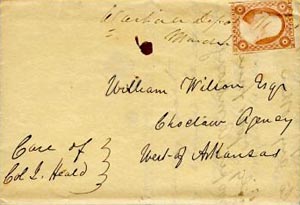 William Wilson Esqr
Choctaw Agency
West of Arkansas
Care of
Col I. Heald